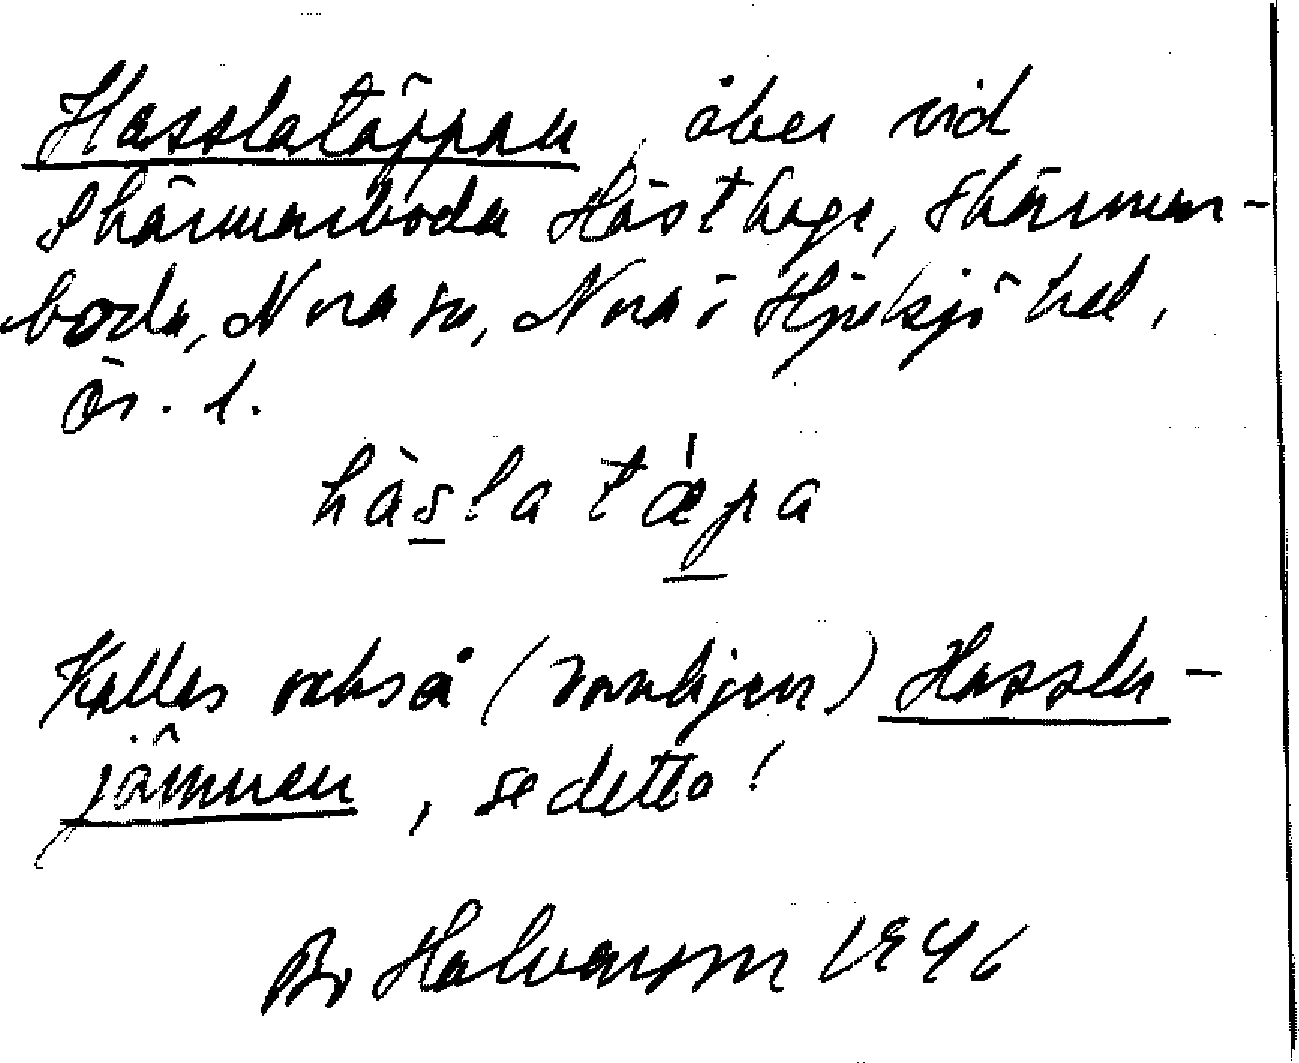 Hasslatäppan, åker vid
Skärmarboda Hästhage, Skärmar-
boda, Nora sn, Nora ö Hjulsjö hd,
Ör. l.
hàslatæ̍pa
Kallas också (vanligen) Hassla-
jämnan, se detta!
Br Halvarsson 1946